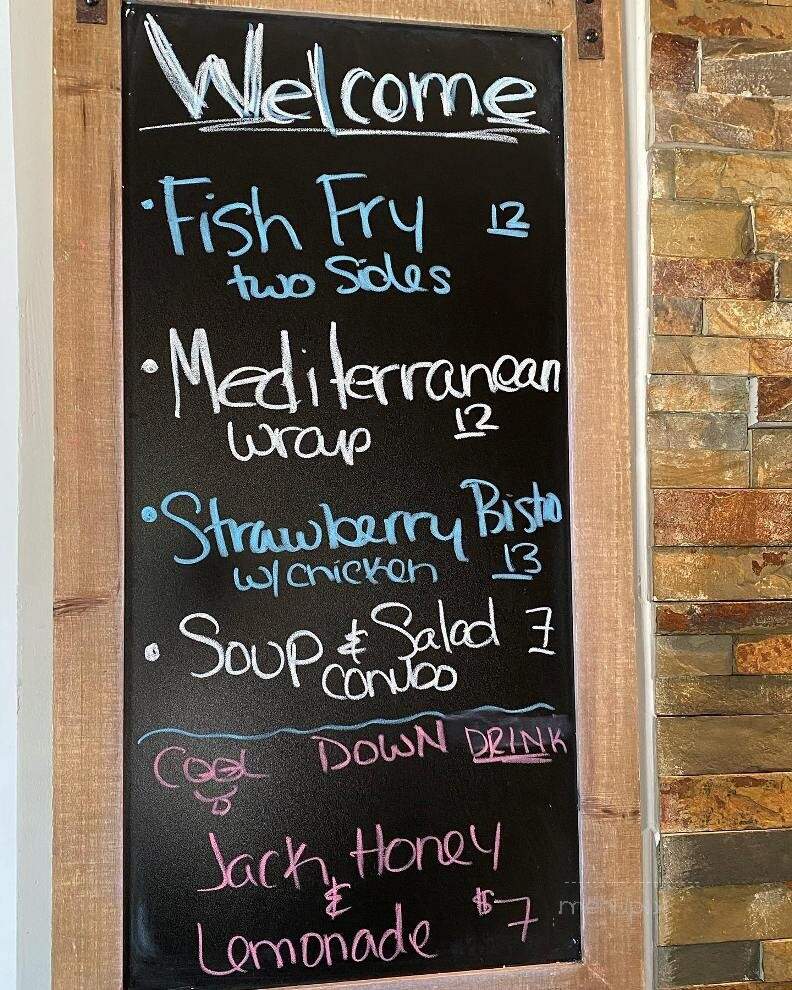 Welcome
• Fish Fry 12
two Sides
• Mediterranean
wrap 12
• Strawberry Bistro
w/ chicken 13
• Soup & Salad 7
combo
COOL DOWN DRINK
Jack Honey
&
Lemonade $7